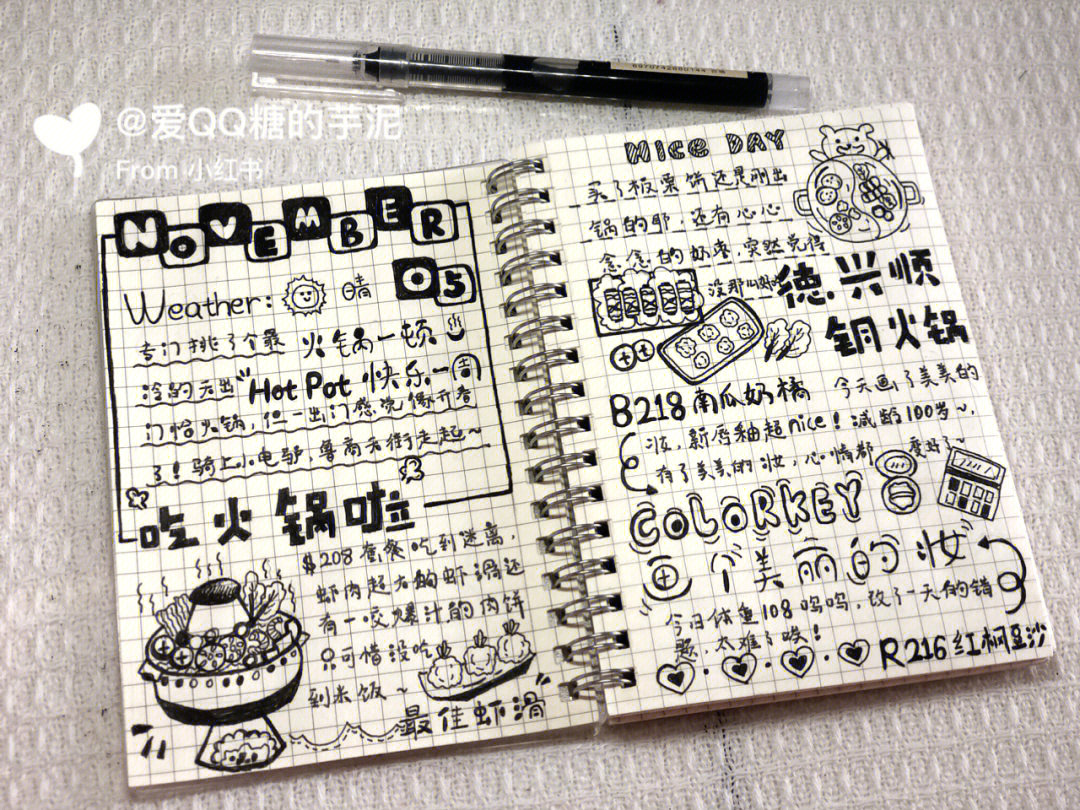 @爱QQ糖的芋泥
From 小红书
6970742680144
NOVEMBER
05
Weather: 晴
专门挑了个最 火锅一顿
冷的天出 Hot Pot 快乐一周
门恰火锅,但一出门感觉像开春
了!骑上小电驴,鲁商天街走起~
吃火锅啦
$208套餐吃到迷离,
虾肉超大的虾滑还
有一咬爆汁的肉饼
只可惜没吃
到米饭~
最佳虾滑
Nice DAY
买了板栗饼还是刚出
锅的耶,还有心心
念念的奶枣,突然觉得
没那么好吃
德兴顺
铜火锅
B218南瓜奶橘 今天画了美美的
妆,新唇釉超nice!减龄100岁~,
有了美美的妆,心情都变好了~
COLORKEY
画个美丽的妆
今日体重108呜呜,改了一天的错
题,太难了唉!
R216红桐豆沙